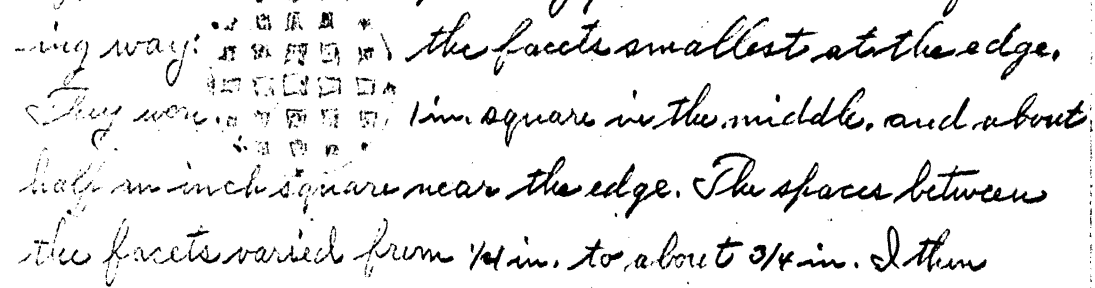 -ing way: the facets smallest at the edge.
They were 1 in. square in the middle, and about
half an inch square near the edge. The spaces between
the facets varied from 1/4 in. to about 3/4 in. I then